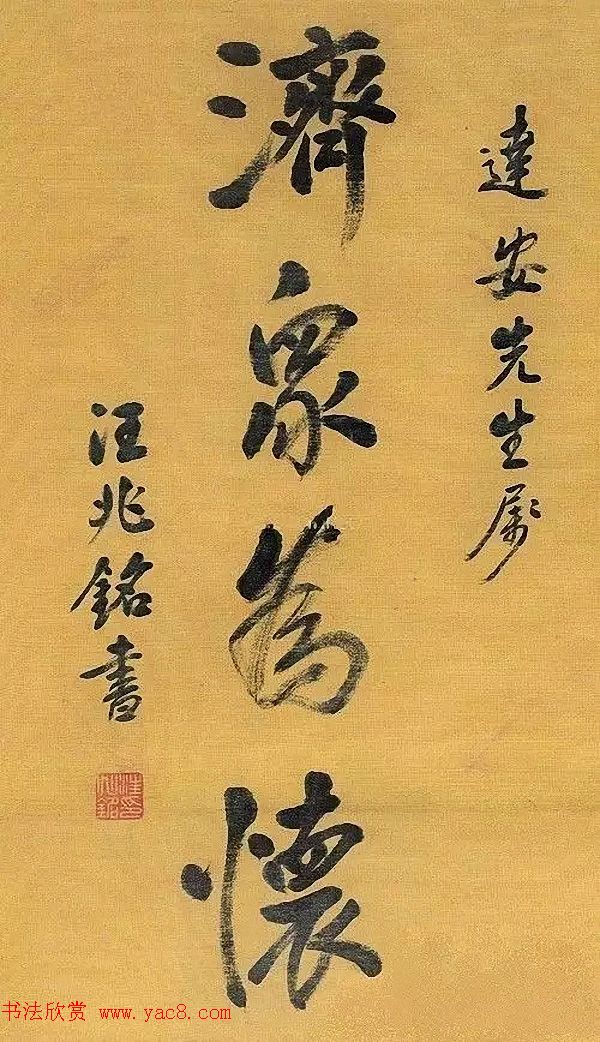 達安先生属
濟眾為懷
汪兆銘書
汪兆銘印
书法欣赏 www.yac8.com